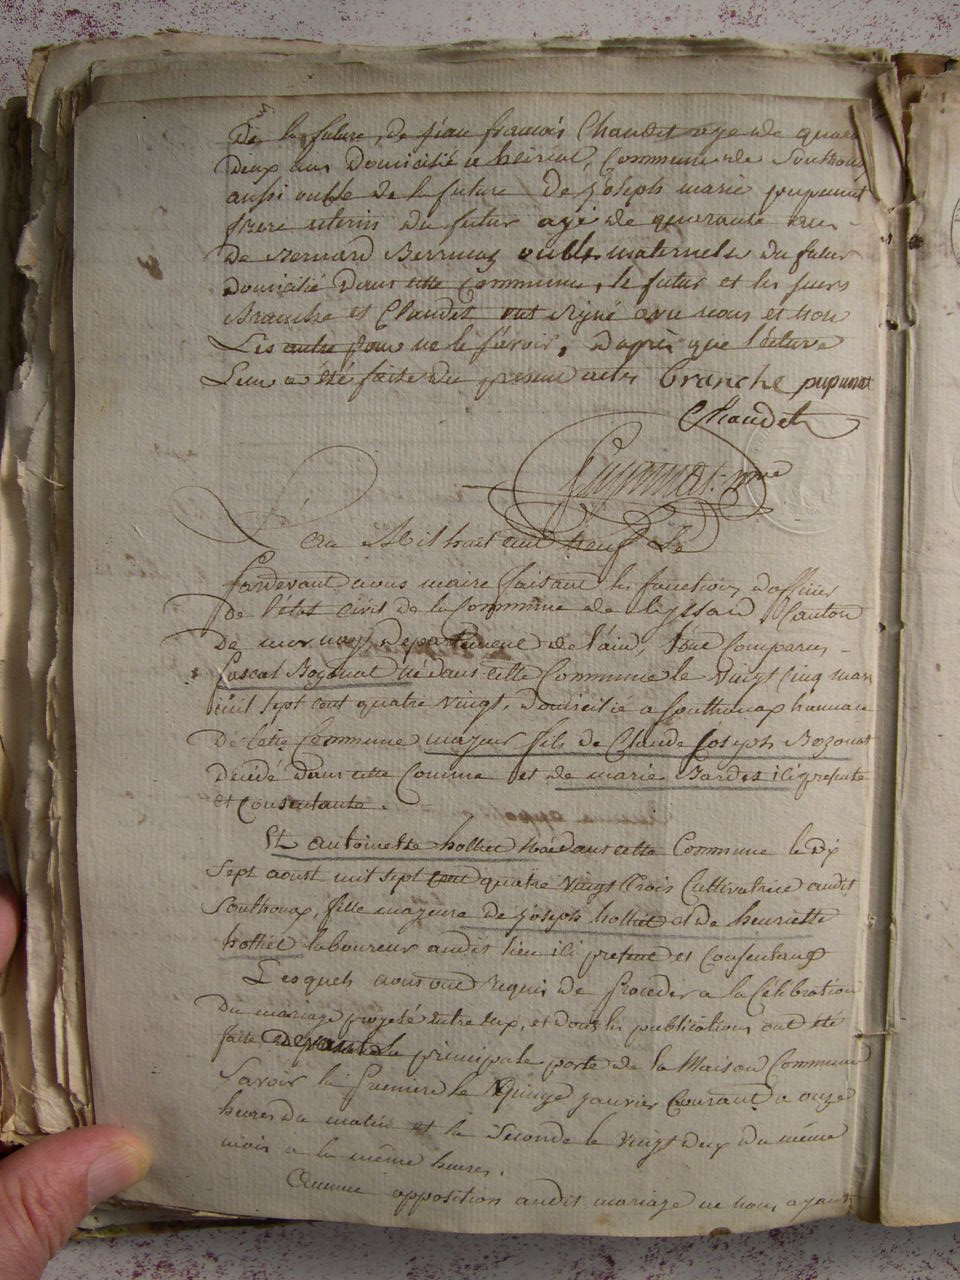 De la future, de jean françois Chaudet age de quara
deux ans Domicilié a heiriat, Commune de Southonax
aussi oncle de la future De joseph marie pupunat
frere uterin du futur agé de quarante ans
De Bernard Berruas oncle maternelle du futur
domicilié dans cette Commune, le futur et les sieurs
Branche et Chaudet ont signé avec nous et non
Les autre pour ne le sçavoir, d'après que lecture
Leur a été faite du present acte, branche pupunat
Chaudet
pupunat maire
L'an Mil huit cent neuf le
pardevant nous maire faisant les fonctions d'officier
De l'état civil de la Commune de Leyssard Canton
De département de l'ain, Sont Comparus
pascal Bozonat né dans cette Commune le Vingt Cinq mars
mil sept cent quatre vingt, domicilié a Southonax hameau
De Cette Commune majeur fils de Claude Joseph Bozonat
Décédé Dans cette Commune et de marie Bardet ici presente
et Consentante.
Et antoinette hottiet née dans cette Commune le dix
sept aoust mil sept cent quatre vingt trois Cultivatrice audit
Southonax, fille majeure de joseph hottiet et de henriette
hottiet laboureur audit lieu ici present et Consentant
Lesquels nous ont requis de proceder a la Célébration
Du mariage projeté entre eux, et dont les publications ont été
faite devant la principale porte de la Maison Commune
Savoir la premiere le quinze janvier Courant a onze
heures du matin et la Seconde le vingt deux du même
mois a la même heure.
Aucune opposition audit mariage ne nous ayant